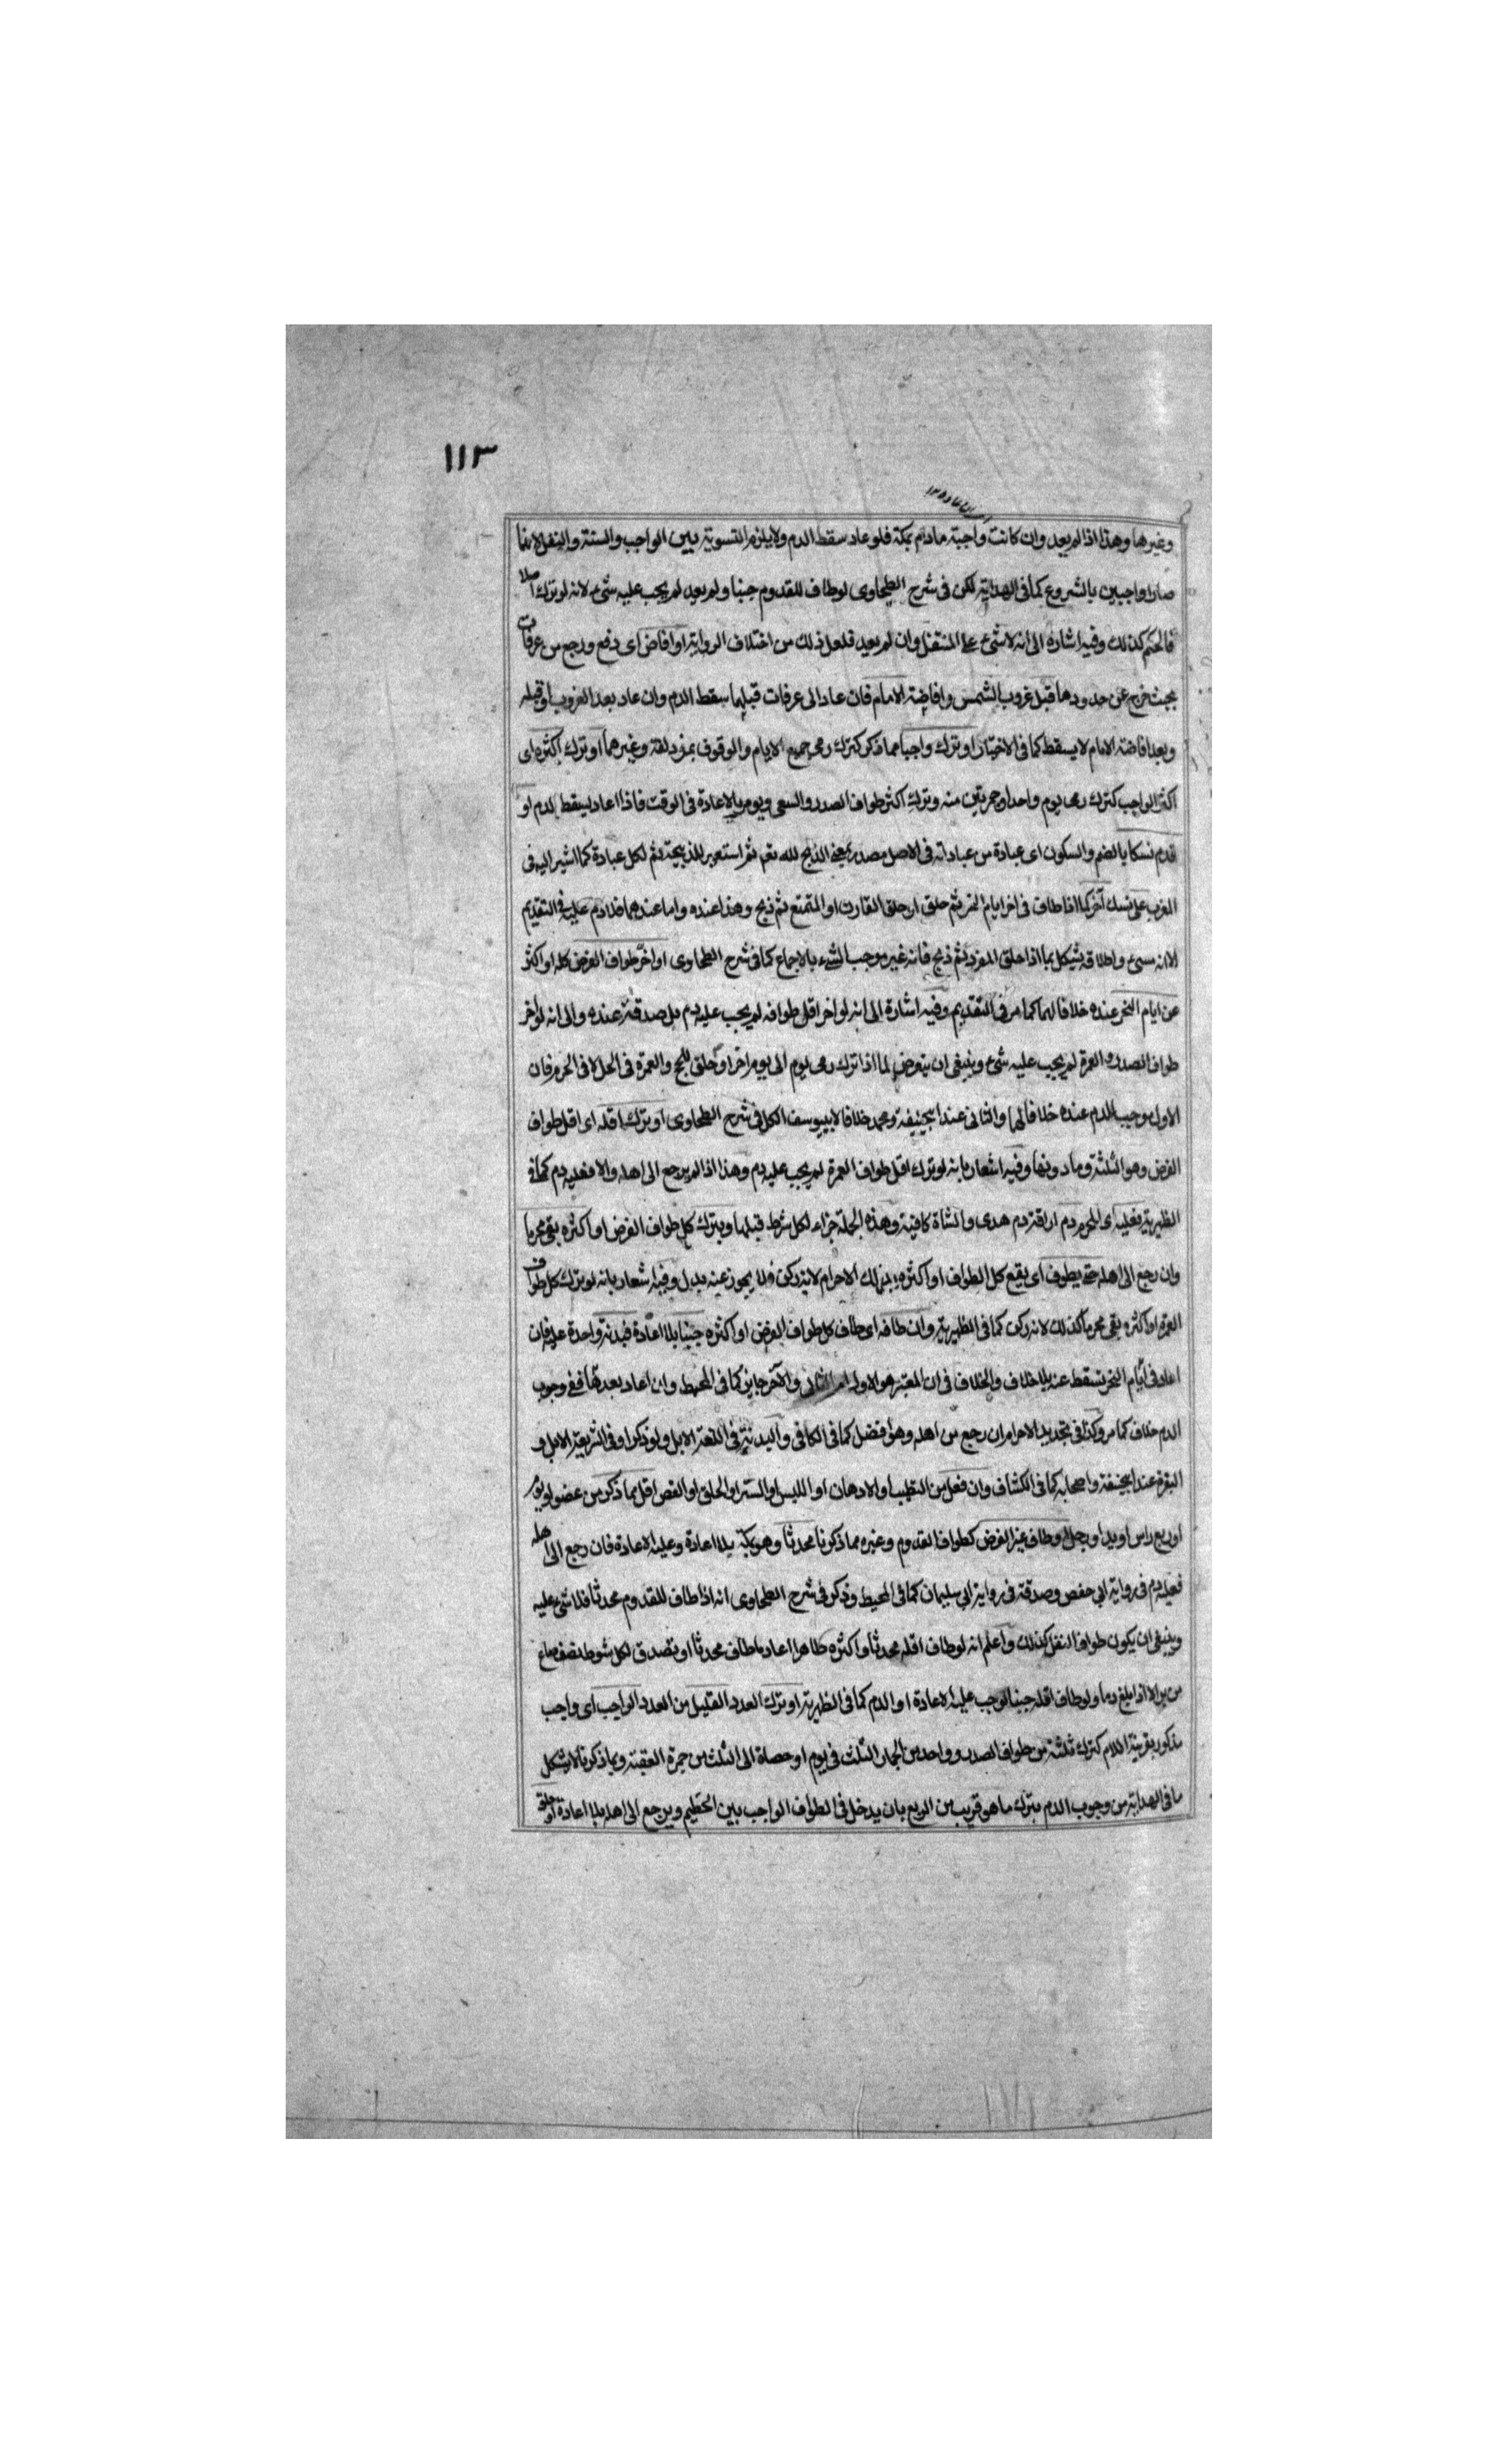 ١١٣
وغيرها وهذا اذا لم يعد وان كانت واجبة مادام بمكة فلو عاد سقط الدم ولا يلزم التسوية بين الواجب والسنة والنفل لانهما
صارا واجبين بالشروع كما فى الهداية لكن فى شرح الطحاوى لو طاف للقدوم جنبا ولم يعد لم يجب عليه شئ لانه لو ترك اصلا
فالحكم كذلك وفيه اشارة الى انه لا شئ على المتنفل وان لم يعيد فلعل ذلك من اختلاف الرواية او افاض اى دفع ورجع من عرفات
بحيث خرج عن حدودها قبل غروب الشمس وافاضة الامام فان عاد الى عرفات قبلهما سقط الدم وان عاد بعد الغروب او قبله
وبعد افاضة الامام لا يسقط كما فى الاختيار او ترك واجبا مما ذكر كترك رمى جميع الايام والوقوف بمزدلفة وغيرهما او ترك اكثره اى
اكثر الواجب كترك رمى يوم واحد او جمرتين منه وترك اكثر طواف الصدر والسعى ويومر بالاعادة فى الوقت فاذا اعاد يسقط الدم او
قدم نسكا بالضم والسكون اى عبادة من عباداته فى الاصل مصدر بمعنى الذبح لله تعم ثم استعير للذبيحة ثم لكل عبادة كما اشير اليه فى
المغرب على نسك آخر كما اذا طاف فى اخر ايام النحر ثم حلق او حلق القارن او المتمتع ثم ذبح وهذا عنده واما عندهما فلا دم عليه فى التقديم
الا انه مسئ واطلاقه يشكل بما اذا حلق المفرد ثم ذبح فانه غير موجب لشئ بالاجماع كما فى شرح الطحاوى او اخر طواف الفرض كله او اكثر
عن ايام النحر عنده خلافا لهما كما مر فى التقديم وفيه اشارة الى انه لو اخر اقل طوافه لم يجب عليه دم بل صدقة عنده والى انه لو اخر
طواف الصدر والعمرة لم يجب عليه شئ وينبغى ان يتعرض لما اذا ترك رمى يوم الى يوم اخر او حلق للحج والعمرة فى الحل لا فى الحرم فان
الاول يوجب الدم عنده خلافا لهما والثانى عند ابيحنيفة ومحمد خلافا لابييوسف الكل فى شرح الطحاوى او ترك اقله اى اقل طواف
الفرض وهو الثلثة وما دونها وفيه اشعار بانه لو ترك اقل طواف العمرة لم يجب عليه دم وهذا اذا لم يرجع الى اهله والا فعليه دم كما فى
الظهيرية فعليه اى المحرم دم اراقة دم هدى والشاة كافية وهذه الجملة جزاء لكل شرط قبلها وبترك كل طواف الفرض او اكثره بقى محرما
وان رجع الى اهله حتى يطوف اى يقع كل الطواف او اكثره بذلك الاحرام لانه ركن فلا يجوز عنه بدل وفيه اشعار بانه لو ترك كل طواف
العمرة او اكثره بقى محرما كذلك لانه ركن كما فى الظهيرية وان طافه اى طاف كل طواف الفرض او اكثره جنبا بلا اعادة فبدنة واحدة عليه فان
اعاد فى ايام النحر تسقط عنه بلا خلاف والخلاف فى ان المعتبر هو الاول ام الثانى والآخر جابر كما فى المحيط وان اعاد بعدها ففى وجوب
الدم خلاف كما مر وكذا فى تجديد الاحرام ان رجع من اهله وهو افضل كما فى الكافى والبدنة فى اللغة الابل ولو ذكرا وفى الشريعة الابل و
البقرة عند ابيحنيفة واصحابه كما فى الكشاف وان فعل من التطيب او الادهان او اللبس او الستر او الحلق او القص اقل مما ذكر من عضو او يوم
او ربع راس او يد او رجل او طاف غير الفرض كطواف القدوم وغيره مما ذكرنا محدثا وهو بمكة بلا اعادة وعليه الاعادة فان رجع الى اهله
فعليه دم فى رواية ابى حفص وصدقة فى رواية ابى سليمان كما فى المحيط وذكر فى شرح الطحاوى انه اذا طاف للقدوم محدثا فلا شئ عليه
وينبغى ان يكون طواف النفل كذلك واعلم انه لو طاف اقله محدثا واكثره طاهرا اعاد ما طاف محدثا او تصدق لكل شوط نصف صاع
من بر الا اذا بلغ دما ولو طاف اقله جنبا لوجب عليه الاعادة او الدم كما فى الظهيرية او ترك العدد القليل من العدد الواجب اى واجب
مذكور بقرينة اللام كترك ثلثة من طواف الصدر وواحد من الجمار الثلث فى يوم او حصاة الى الثلث من جمرة العقبة وبما ذكرنا لا يشكل
ما فى الهداية من وجوب الدم بترك ما هو قريب من الربع بان يدخل فى الطواف الواجب بين الحطيم ويرجع الى اهله بلا اعادة او حلق